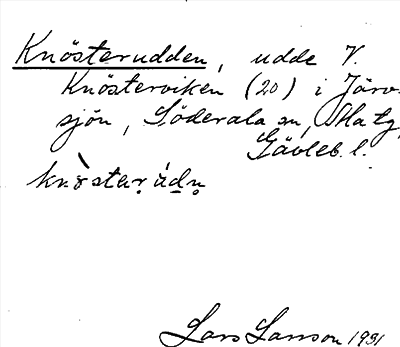 Knösterudden, udde V.
Knösterviken (20) i Järv-
sjön, Söderala sn,
Gävleb. l.
Lars Larsson 1931